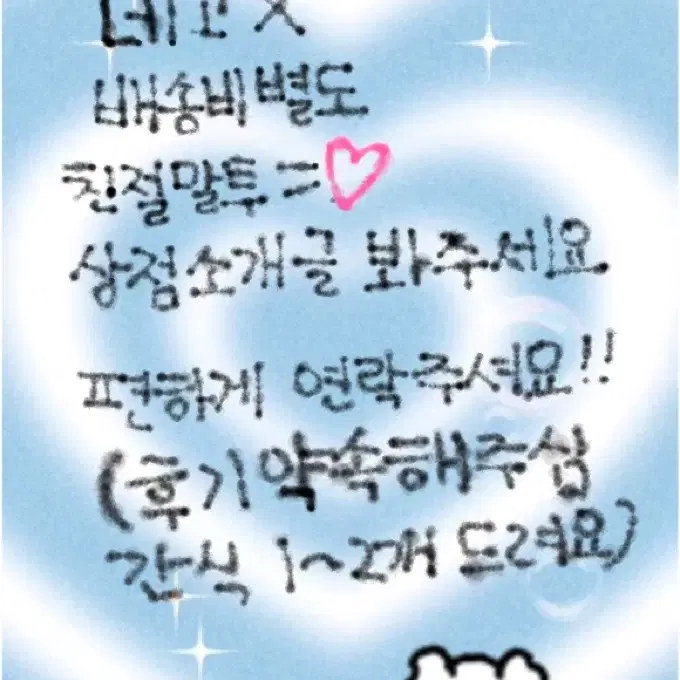 네고 X
배송비 별도
친절말투 = ♡
상점소개글 봐주세요
편하게 연락주셔요!!
(후기 약속해주심
간식 1~2개 드려요)